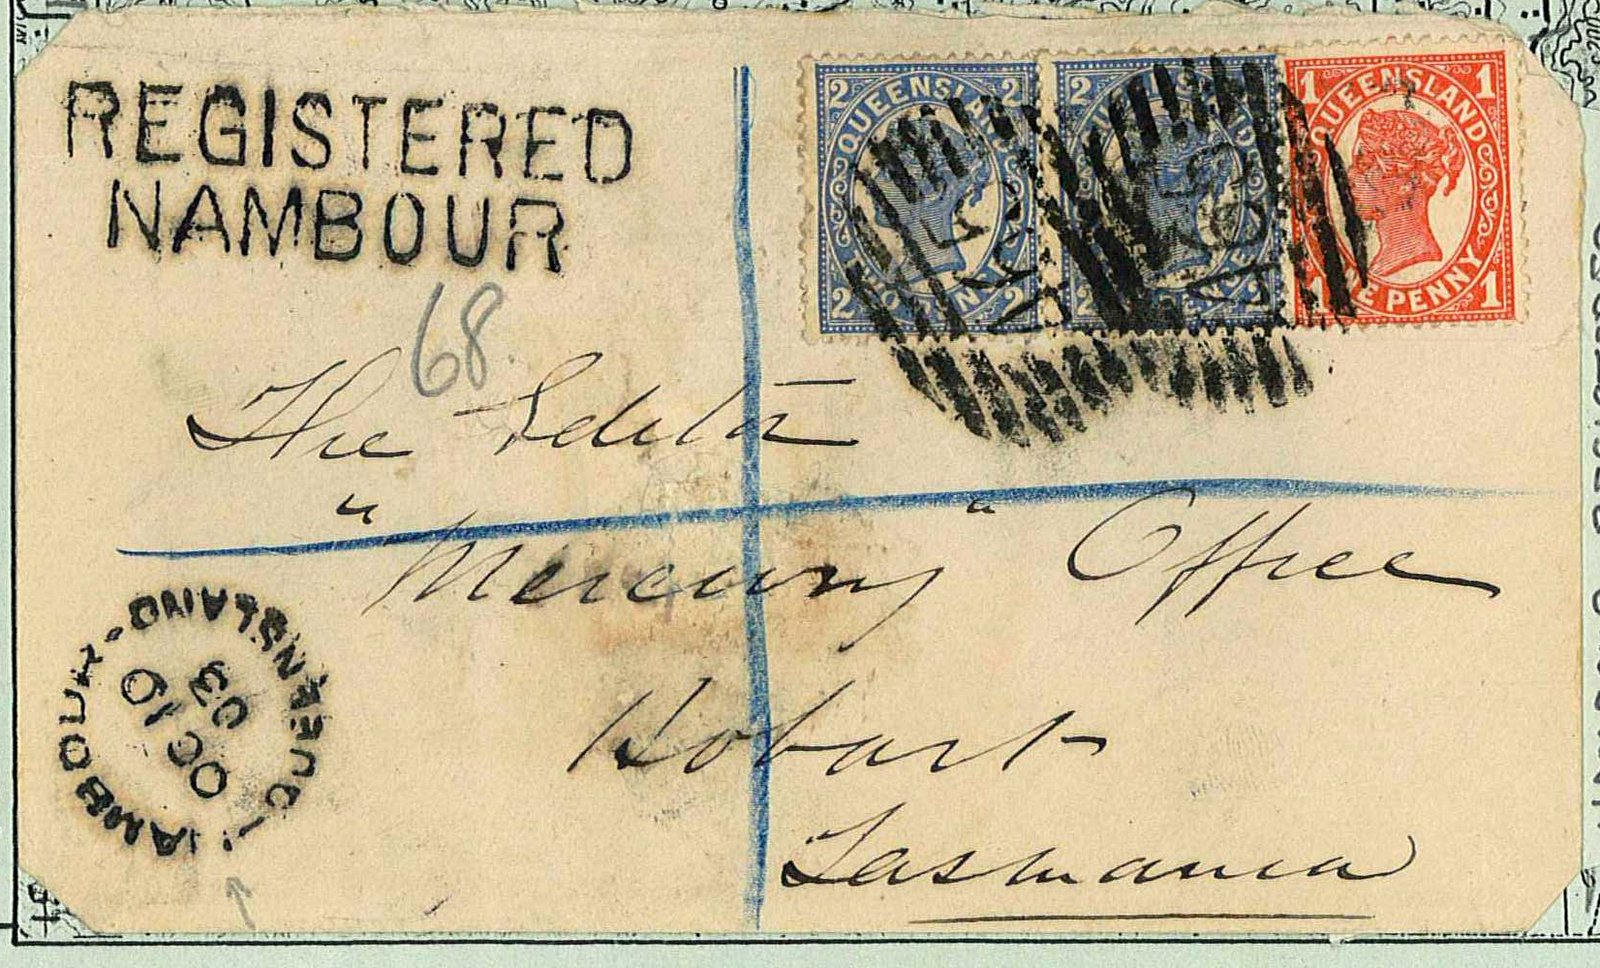 REGISTERED
NAMBOUR
68
2 QUEENSLAND 2
2 TWO PENCE 2
2 QUEENSLAND
2 PENCE 2
1 QUEENSLAND 1
1 ONE PENNY 1
The Editor
"Mercury" Office
Hobart
Tasmania
NAMBOUR QUEENSLAND
OC 10
03